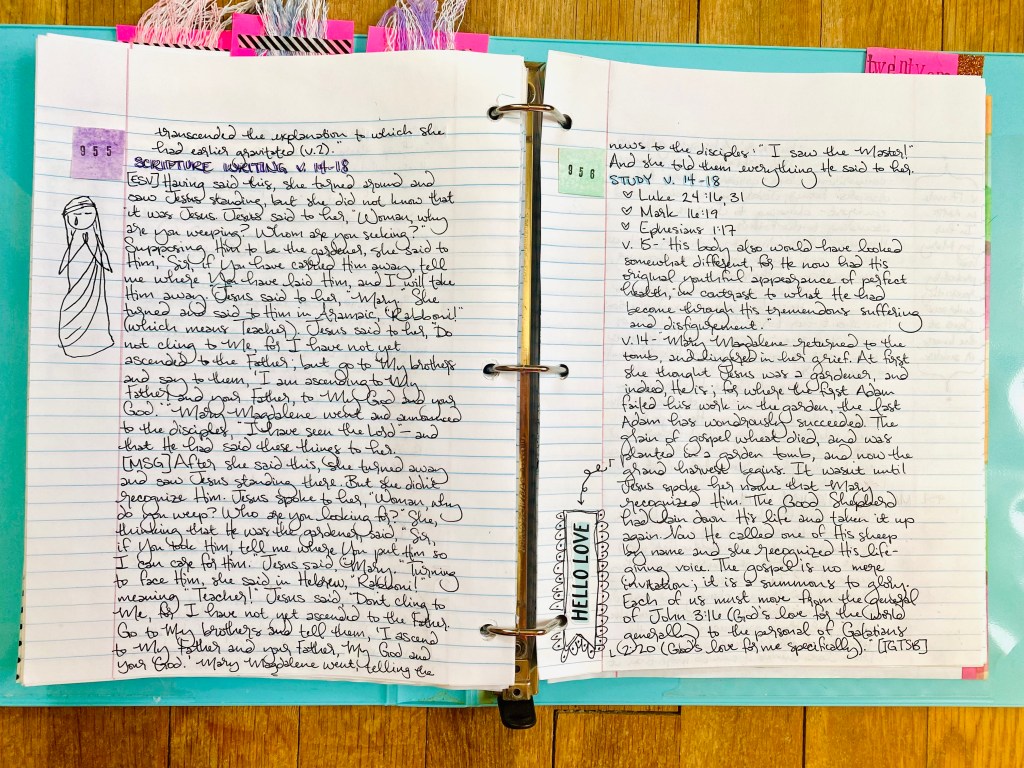 twenty one
955
transcended the explanation to which she
had earlier gravitated (v.2)."
SCRIPTURE WRITING v. 14-18
[ESV] Having said this, she turned around and
saw Jesus standing, but she did not know that
it was Jesus. Jesus said to her, "Woman, why
are you weeping? Whom are you seeking?"
Supposing Him to be the gardener, she said to
Him, "Sir, if You have carried Him away, tell
me where You have laid Him, and I will take
Him away. Jesus said to her, "Mary." She
turned and said to Him in Aramaic, "Rabboni!"
(which means Teacher). Jesus said to her, "Do
not cling to Me, for I have not yet
ascended to the Father; but go to My brothers
and say to them, 'I am ascending to My
Father and your Father, to My God and your
God.'" Mary Magdalene went and announced
to the disciples, "I have seen the Lord"— and
that He had said these things to her.
[MSG] After she said this, she turned away
and saw Jesus standing there. But she didn't
recognize Him. Jesus spoke to her, "Woman, why
do you weep? Who are you looking for?" She,
thinking that He was the gardener, said, "Sir,
if You took Him, tell me where You put Him so
I can care for Him." Jesus said, "Mary." Turning
to face Him, she said in Hebrew, "Rabboni!"
meaning "Teacher!" Jesus said, "Don't cling to
Me, for I have not yet ascended to the Father.
Go to My brothers and tell them, 'I ascend
to My Father and your Father, My God and
your God.'" Mary Magdalene went, telling the
956
news to the disciples: "I saw the Master!"
And she told them everything He said to her.
STUDY v. 14-18
♡ Luke 24:16, 31
♡ Mark 16:19
♡ Ephesians 1:17
v. 15- "His body also would have looked
somewhat different, for He now had His
original youthful appearance of perfect
health, in contrast to what He had
become through His tremendous suffering
and disfigurement."
v. 14- "Mary Magdalene returned to the
tomb, and lingered in her grief. At first
she thought Jesus was a gardener, and
indeed He is; for where the first Adam
failed his work in the garden, the last
Adam has wondrously succeeded. The
grain of gospel wheat died, and was
planted in a garden tomb, and now the
grand harvest begins. It wasn't until
Jesus spoke her name that Mary
recognized Him. The Good Shepherd
had lain down His life and taken it up
again. Now He called one of His sheep
by name and she recognized His life-
giving voice. The gospel is no mere
invitation; it is a summons to glory.
Each of us must move from the general
of John 3:16 (God's love for the world
generally) to the personal of Galatians
2:20 (God's love for me specifically)." [IGTSB]
HELLO LOVE